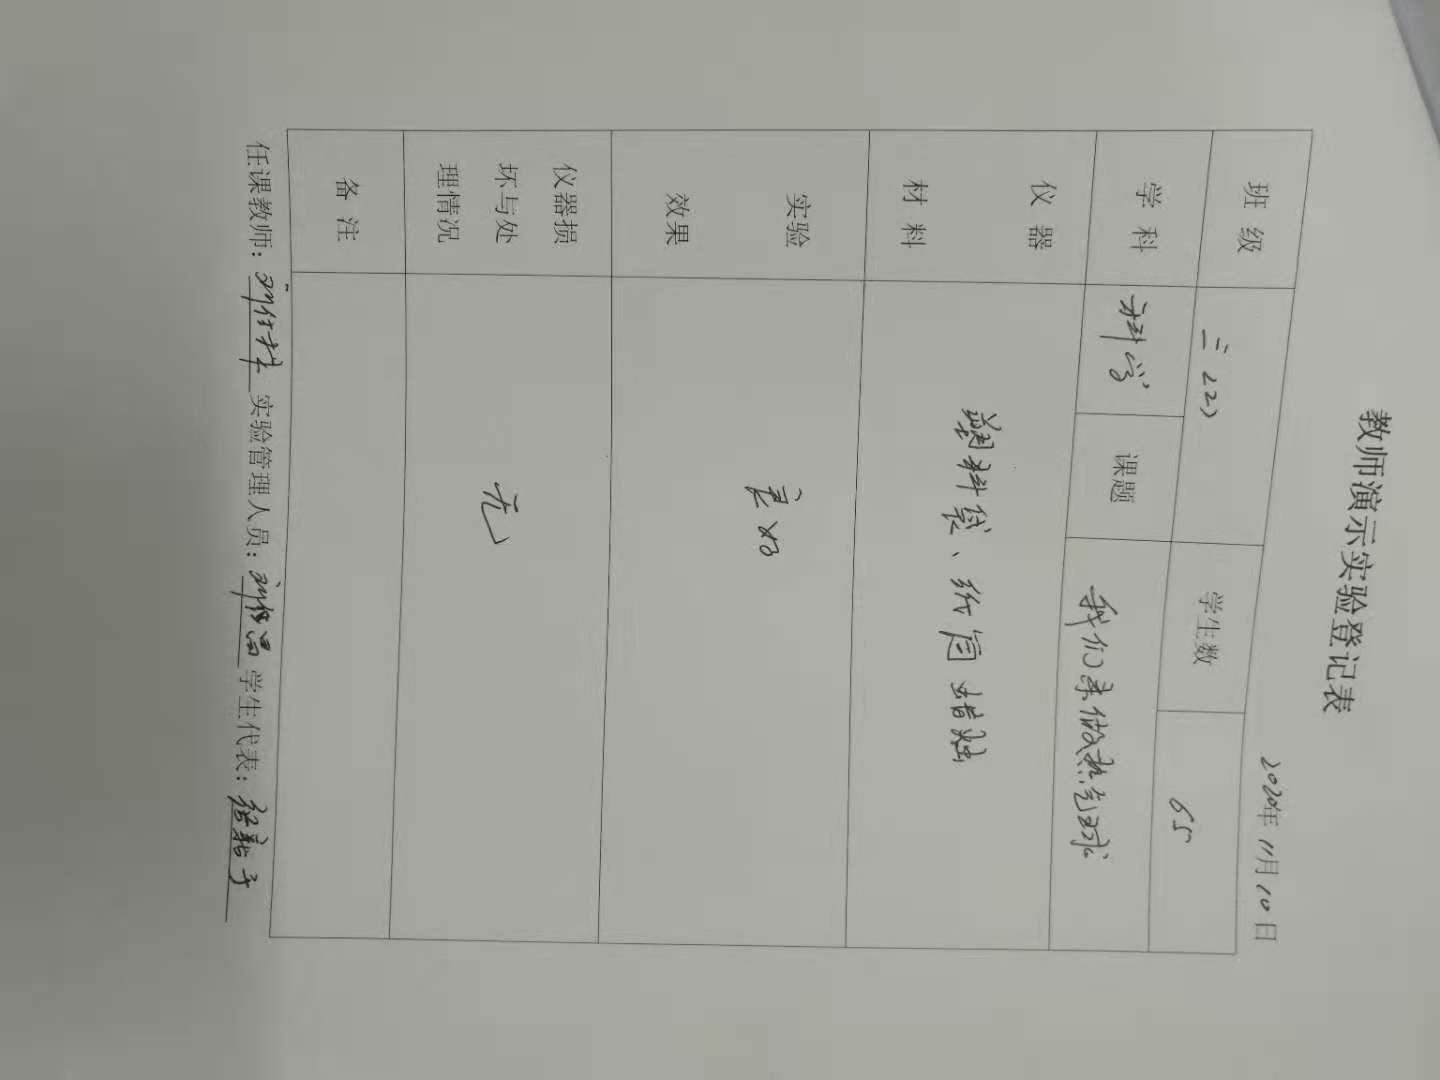 教师演示实验登记表
2020年 11月 10日
班 级 三(2) 学生数 65
学 科 科学 课题 我们来做热气球
仪 器 材 料 塑料袋、纸筒 蜡烛
实验效果 良好
仪器损坏与处理情况 无
备 注
任课教师: 实验管理人员: 学生代表: